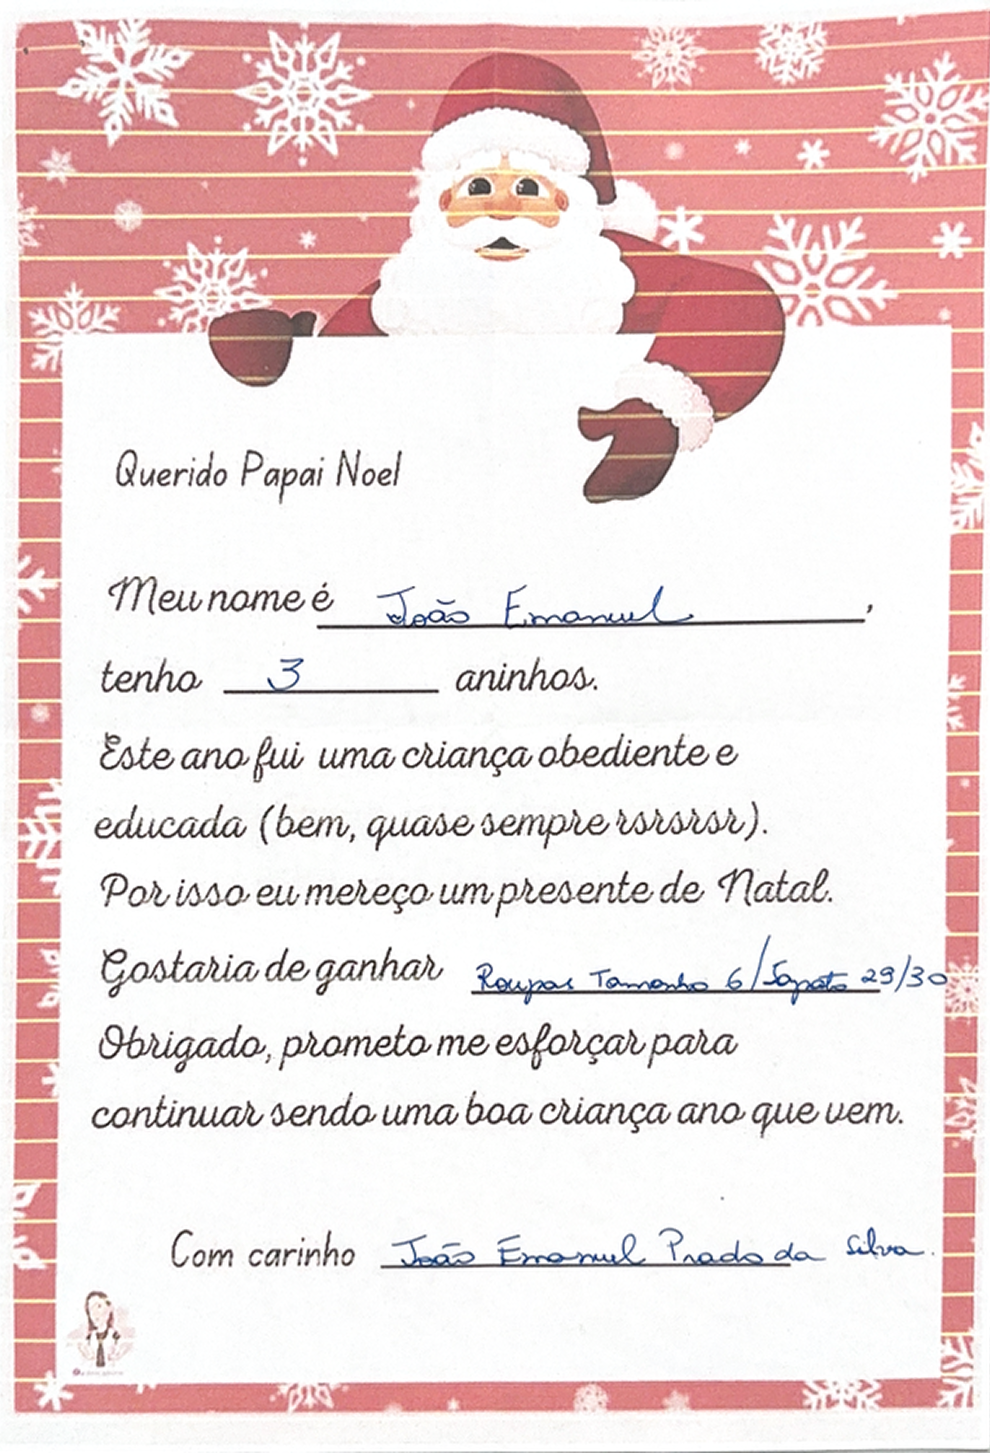 Querido Papai Noel
Meu nome é João Emanuel,
tenho 3 aninhos.
Este ano fui uma criança obediente e
educada (bem, quase sempre rsrsrsr).
Por isso eu mereço um presente de Natal.
Gostaria de ganhar Roupas Tamanho 6/Sapato 29/30
Obrigado, prometo me esforçar para
continuar sendo uma boa criança ano que vem.
Com carinho João Emanuel Prado da Silva.